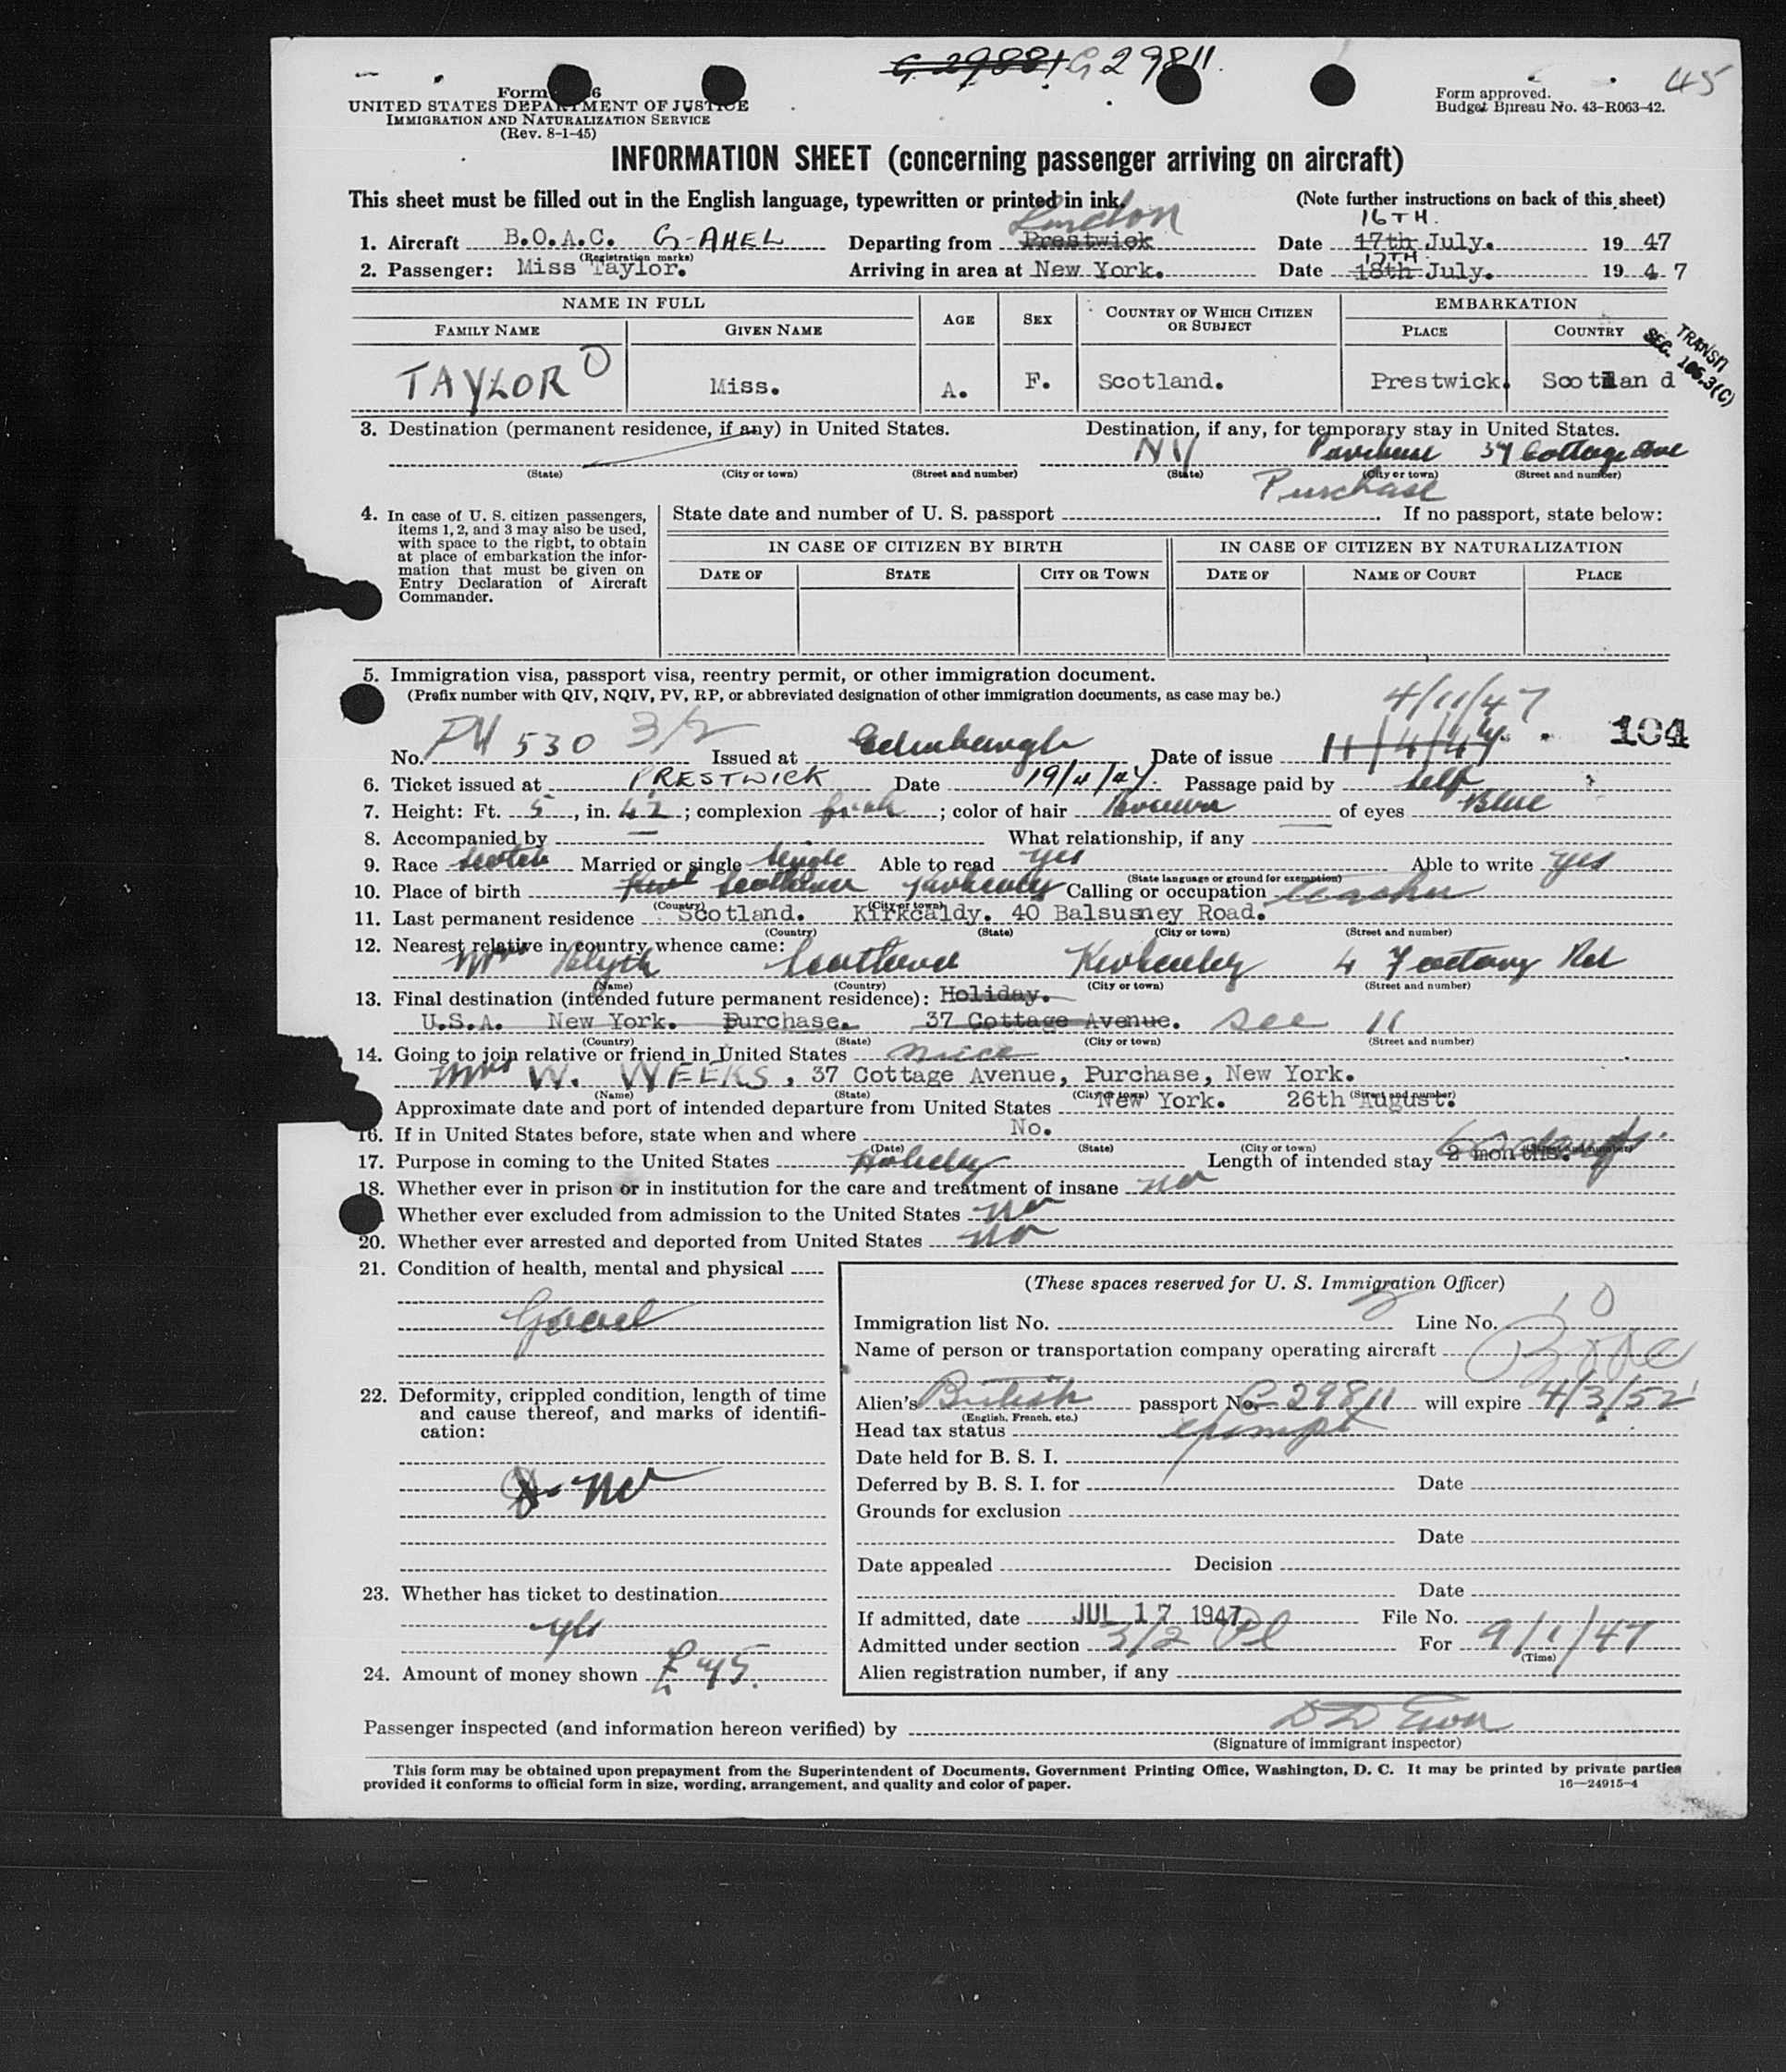 G 29881 G 29811
45
Form 6
UNITED STATES DEPARTMENT OF JUSTICE
IMMIGRATION AND NATURALIZATION SERVICE
(Rev. 8-1-45)
Form approved.
Budget Bureau No. 43-R063-42.
INFORMATION SHEET (concerning passenger arriving on aircraft)
This sheet must be filled out in the English language, typewritten or printed in ink.
(Note further instructions on back of this sheet)
London 16TH.
1. Aircraft B.O.A.C. G-AHEL Departing from Prestwick Date 17th July. 19 47
(Registration marks) 17TH
2. Passenger: Miss Taylor. Arriving in area at New York. Date 18th July. 19 4 7
NAME IN FULL AGE SEX COUNTRY OF WHICH CITIZEN OR SUBJECT EMBARKATION
FAMILY NAME GIVEN NAME PLACE COUNTRY
TRANSIT
SEC. 106.3(C)
TAYLOR Miss. A. F. Scotland. Prestwick. Scotlan d
3. Destination (permanent residence, if any) in United States. Destination, if any, for temporary stay in United States.
NY 37 Cottage Ave
(State) (City or town) (Street and number) (State) (City or town) (Street and number)
Purchase
4. In case of U. S. citizen passengers, items 1, 2, and 3 may also be used, with space to the right, to obtain at place of embarkation the information that must be given on Entry Declaration of Aircraft Commander.
State date and number of U. S. passport . If no passport, state below:
IN CASE OF CITIZEN BY BIRTH IN CASE OF CITIZEN BY NATURALIZATION
DATE OF STATE CITY OR TOWN DATE OF NAME OF COURT PLACE
5. Immigration visa, passport visa, reentry permit, or other immigration document.
(Prefix number with QIV, NQIV, PV, RP, or abbreviated designation of other immigration documents, as case may be.)
4/11/47
104
No. PV 530 3/2 Issued at Edinburgh Date of issue 11/4/47
6. Ticket issued at PRESTWICK Date 19/4/47. Passage paid by self
7. Height: Ft. 5, in. 4 1/2; complexion fresh; color of hair Brown of eyes Blue
8. Accompanied by — What relationship, if any —
9. Race Scotch Married or single Single Able to read yes Able to write yes
(State language or ground for exemption)
10. Place of birth Scotland Calling or occupation teacher
(Country) (City or town)
11. Last permanent residence Scotland. Kirkcaldy. 40 Balsusney Road.
(Country) (State) (City or town) (Street and number)
12. Nearest relative in country whence came:
Mrs Blyth Scotland 4 Factory Rd
(Name) (Country) (City or town) (Street and number)
13. Final destination (intended future permanent residence): Holiday.
U.S.A. New York. Purchase. 37 Cottage Avenue. See 11
(Country) (State) (City or town) (Street and number)
14. Going to join relative or friend in United States niece
Mrs W. WEEKS, 37 Cottage Avenue, Purchase, New York.
(Name) (State) (City or town) (Street and number)
Approximate date and port of intended departure from United States New York. 26th August.
16. If in United States before, state when and where No.
(Date) (State) (City or town) (Street and number)
17. Purpose in coming to the United States Holiday Length of intended stay 2 months. 60 days.
18. Whether ever in prison or in institution for the care and treatment of insane no
Whether ever excluded from admission to the United States no
20. Whether ever arrested and deported from United States no
21. Condition of health, mental and physical
Good
22. Deformity, crippled condition, length of time and cause thereof, and marks of identification:
no
23. Whether has ticket to destination
yes
24. Amount of money shown £45.
(These spaces reserved for U. S. Immigration Officer)
Immigration list No. 2 Line No. 10
Name of person or transportation company operating aircraft BOAC
Alien's British passport No. C 29811 will expire 4/3/52
(English, French, etc.)
Head tax status exempt
Date held for B. S. I.
Deferred by B. S. I. for Date
Grounds for exclusion
Date
Date appealed Decision
Date
If admitted, date JUL 17 1947 File No.
Admitted under section 3/2 For 9/1/47
(Time)
Alien registration number, if any
Passenger inspected (and information hereon verified) by
(Signature of immigrant inspector)
This form may be obtained upon prepayment from the Superintendent of Documents, Government Printing Office, Washington, D. C. It may be printed by private parties
provided it conforms to official form in size, wording, arrangement, and quality and color of paper. 16—24915-4